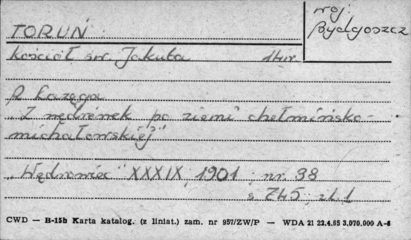 TORUŃ
woj.
Bydgoszcz
kościół św. Jakuba 14w.
R Kazega
"Z wędrówek po ziemi chełmińsko-
michałowskiej"
"Wędrowiec" XXXIX, 1901, nr. 38
s 745 il 1
CWD — H-15b Karta katalog. (z liniat.) zam. nr 957/ZW/P — WDA 21 22.4.65 3,070.000 A-6